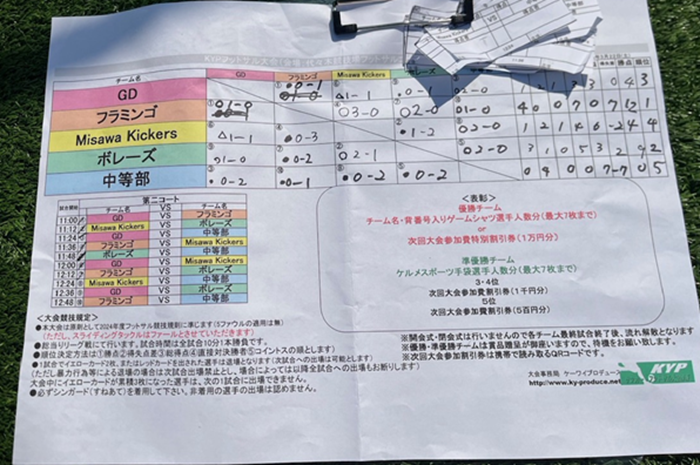 KYPフットサル大会（会場：代々木
チーム名 GD フラミンゴ Misawa Kickers ボレーズ 勝点 順位
GD ●0-1 △1-1 0-1 2-0 4 3
フラミンゴ ○1-0 ○3-0 ○2-0 ○1-0 4 0 0 7 0 7 12 1
Misawa Kickers △1-1 ●0-3 ●1-2 ○2-0 1 2 1 4 6 -2 4 4
ボレーズ ○1-0 ●0-2 ○2-1 ○2-0 3 1 0 5 3 2 9 2
中等部 ●0-2 ●0-1 ●0-2 ●0-2 0 4 0 0 7 -7 0 5
第二コート
試合開始 チーム名 VS チーム名
11:00 GD VS フラミンゴ
11:12 Misawa Kickers VS ボレーズ
11:24 GD VS 中等部
11:36 フラミンゴ VS Misawa Kickers
11:48 ボレーズ VS 中等部
12:00 GD VS Misawa Kickers
12:12 フラミンゴ VS ボレーズ
12:24 Misawa Kickers VS 中等部
12:36 GD VS ボレーズ
12:48 フラミンゴ VS 中等部
＜表彰＞
優勝チーム
チーム名・背番号入りゲームシャツ選手人数分（最大7枚まで）
or
次回大会参加費特別割引券（1万円分）
準優勝チーム
ケルメスポーツ手袋選手人数分（最大7枚まで）
3・4位
次回大会参加費割引券（1千円分）
5位
次回大会参加費割引券（5百円分）
＜大会競技規定＞
●本大会は原則として2024年度フットサル競技規則に準じます（5ファウルの適用は無）
（ただし、スライディングタックルはファールとさせていただきます）
●総当りリーグ戦にて行います。試合時間は全試合10分1本勝負です。
●順位決定方法は①勝点②得失点差③総得点④直接対決勝者⑤コイントスの順とします
●1試合でイエローカード2枚、またはレッドカードを出された選手は退場となります（次試合への出場は可能とします）
（ただし暴力行為等による退場の場合は次試合出場禁止とし、場合によっては以降全試合への出場もお断りします）
大会中にイエローカードが累積3枚になった選手は、次の1試合に出場できません。
●必ずシンガード（すねあて）を着用して下さい。非着用の選手の出場は認めません。
※開会式・閉会式は行いませんので各チーム最終試合終了後、流れ解散となります
※優勝・準優勝チームは賞品贈呈が御座いますので、待機をお願い致します。
※次回大会参加費割引券は携帯で読み取るQRコードです。
大会事務局 ケーワイプロデュース
http://www.ky-produce.net
KYP